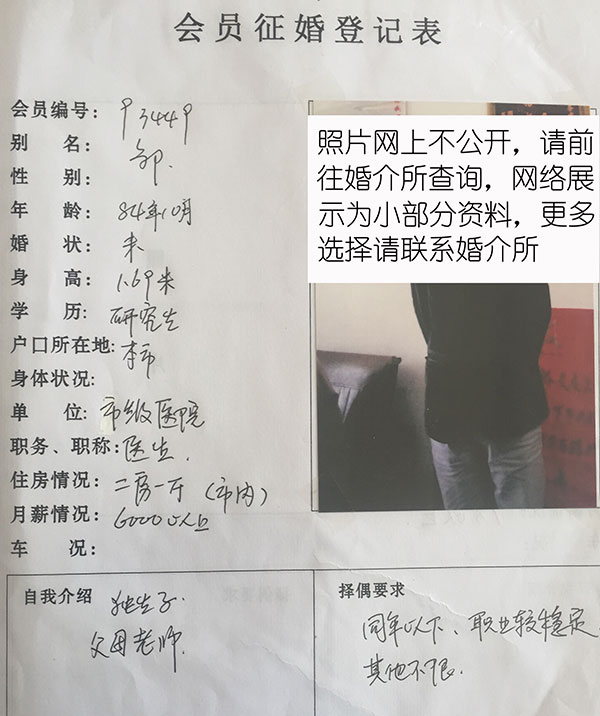 会员征婚登记表
会员编号: 93449
别 名: 邹.
性 别:
年 龄: 84年10月
婚 状: 未
身 高: 1.69米
学 历: 研究生
户口所在地: 本市
身体状况:
单 位: 市级医院
职务、职称: 医生.
住房情况: 二房一厅(市内)
月薪情况: 6000以上
车 况:
照片网上不公开，请前
往婚介所查询，网络展
示为小部分资料，更多
选择请联系婚介所
自我介绍 独生子.
父母老师.
择偶要求
同年以下、职业较稳定
其他不限.